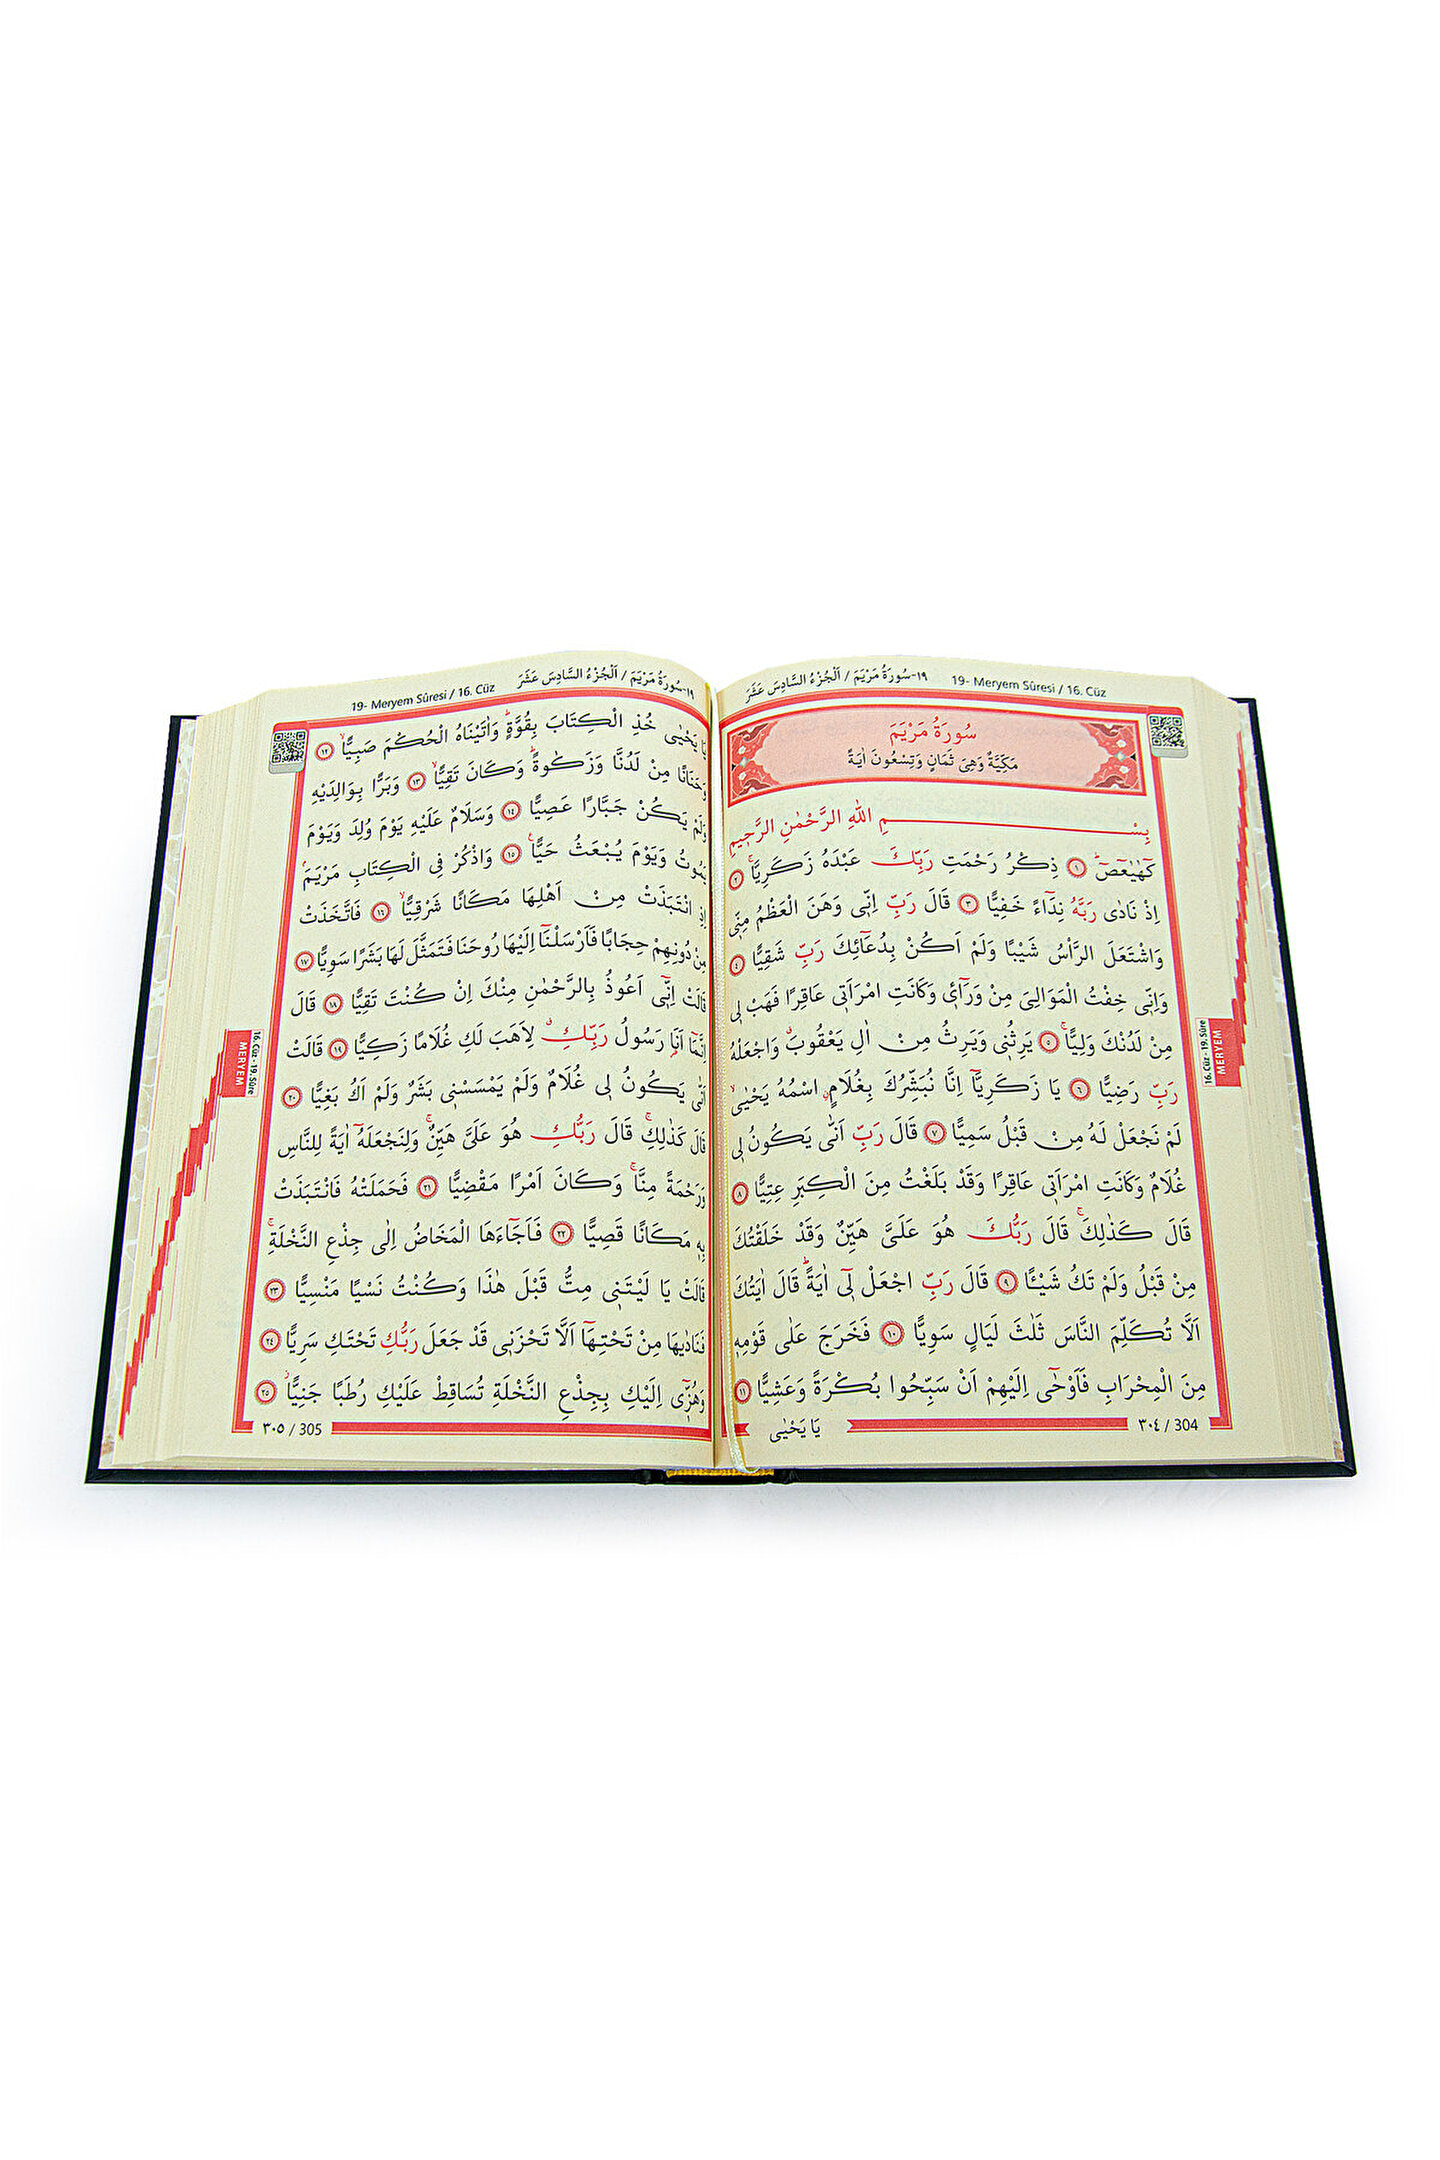 ١٩-سُورَةُ مَرْيَمَ / اَلْجُزْءُ السَّادِسَ عَشَرَ 19- Meryem Sûresi / 16. Cüz
سُورَةُ مَرْيَمَ
مَكِّيَّةٌ وَهِيَ ثَمَانٍ وَتِسْعُونَ اٰيَةً
بِسْمِ اللّٰهِ الرَّحْمٰنِ الرَّحِيمِ
كٓهٰيٰعٓصٓ ۚ ﴿١﴾ ذِكْرُ رَحْمَتِ رَبِّكَ عَبْدَهُ زَكَرِيَّاۚ ﴿٢﴾
اِذْ نَادٰى رَبَّهُ نِدَٓاءً خَفِيًّا ﴿٣﴾ قَالَ رَبِّ اِنّ۪ي وَهَنَ الْعَظْمُ مِنّ۪ي
وَاشْتَعَلَ الرَّأْسُ شَيْبًا وَلَمْ اَكُنْ بِدُعَٓائِكَ رَبِّ شَقِيًّا ﴿٤﴾
وَاِنّ۪ي خِفْتُ الْمَوَالِيَ مِنْ وَرَٓاء۪ي وَكَانَتِ امْرَاَت۪ي عَاقِرًا فَهَبْ ل۪ي
مِنْ لَدُنْكَ وَلِيًّاۙ ﴿٥﴾ يَرِثُن۪ي وَيَرِثُ مِنْ اٰلِ يَعْقُوبَۗ وَاجْعَلْهُ
رَبِّ رَضِيًّا ﴿٦﴾ يَا زَكَرِيَّٓا اِنَّا نُبَشِّرُكَ بِغُلَامٍۨ اسْمُهُ يَحْيٰىۙ
لَمْ نَجْعَلْ لَهُ مِنْ قَبْلُ سَمِيًّا ﴿٧﴾ قَالَ رَبِّ اَنّٰى يَكُونُ ل۪ي
غُلَامٌ وَكَانَتِ امْرَاَت۪ي عَاقِرًا وَقَدْ بَلَغْتُ مِنَ الْكِبَرِ عِتِيًّا ﴿٨﴾
قَالَ كَذٰلِكَۚ قَالَ رَبُّكَ هُوَ عَلَيَّ هَيِّنٌ وَقَدْ خَلَقْتُكَ
مِنْ قَبْلُ وَلَمْ تَكُ شَيْـًٔا ﴿٩﴾ قَالَ رَبِّ اجْعَلْ ل۪ٓي اٰيَةًۜ قَالَ اٰيَتُكَ
اَلَّا تُكَلِّمَ النَّاسَ ثَلٰثَ لَيَالٍ سَوِيًّا ﴿١٠﴾ فَخَرَجَ عَلٰى قَوْمِه۪
مِنَ الْمِحْرَابِ فَاَوْحٰٓى اِلَيْهِمْ اَنْ سَبِّحُوا بُكْرَةً وَعَشِيًّا ﴿١١﴾
يَا يَحْيٰى
٣٠٤ / 304
16. Cüz - 19. Sûre
MERYEM
19- Meryem Sûresi / 16. Cüz ١٩-سُورَةُ مَرْيَمَ / اَلْجُزْءُ السَّادِسَ عَشَرَ
يَا يَحْيٰى خُذِ الْكِتَابَ بِقُوَّةٍۜ وَاٰتَيْنَاهُ الْحُكْمَ صَبِيًّاۙ ﴿١٢﴾
وَحَنَانًا مِنْ لَدُنَّا وَزَكٰوةًۜ وَكَانَ تَقِيًّاۙ ﴿١٣﴾ وَبَرًّا بِوَالِدَيْهِ
وَلَمْ يَكُنْ جَبَّارًا عَصِيًّا ﴿١٤﴾ وَسَلَامٌ عَلَيْهِ يَوْمَ وُلِدَ وَيَوْمَ
يَمُوتُ وَيَوْمَ يُبْعَثُ حَيًّاۚ ﴿١٥﴾ وَاذْكُرْ فِي الْكِتَابِ مَرْيَمَۢ
اِذِ انْتَبَذَتْ مِنْ اَهْلِهَا مَكَانًا شَرْقِيًّاۙ ﴿١٦﴾ فَاتَّخَذَتْ
مِنْ دُونِهِمْ حِجَابًا فَاَرْسَلْنَٓا اِلَيْهَا رُوحَنَا فَتَمَثَّلَ لَهَا بَشَرًا سَوِيًّا ﴿١٧﴾
قَالَتْ اِنّ۪ٓي اَعُوذُ بِالرَّحْمٰنِ مِنْكَ اِنْ كُنْتَ تَقِيًّا ﴿١٨﴾ قَالَ
اِنَّمَٓا اَنَا۬ رَسُولُ رَبِّكِۗ لِاَهَبَ لَكِ غُلَامًا زَكِيًّا ﴿١٩﴾ قَالَتْ
اَنّٰى يَكُونُ ل۪ي غُلَامٌ وَلَمْ يَمْسَسْن۪ي بَشَرٌ وَلَمْ اَكُ بَغِيًّا ﴿٢٠﴾
قَالَ كَذٰلِكِۚ قَالَ رَبُّكِ هُوَ عَلَيَّ هَيِّنٌۚ وَلِنَجْعَلَهُٓ اٰيَةً لِلنَّاسِ
وَرَحْمَةً مِنَّاۚ وَكَانَ اَمْرًا مَقْضِيًّا ﴿٢١﴾ فَحَمَلَتْهُ فَانْتَبَذَتْ
بِه۪ مَكَانًا قَصِيًّا ﴿٢٢﴾ فَاَجَٓاءَهَا الْمَخَاضُ اِلٰى جِذْعِ النَّخْلَةِۚ
قَالَتْ يَا لَيْتَن۪ي مِتُّ قَبْلَ هٰذَا وَكُنْتُ نَسْيًا مَنْسِيًّا ﴿٢٣﴾
فَنَادٰيهَا مِنْ تَحْتِهَٓا اَلَّا تَحْزَن۪ي قَدْ جَعَلَ رَبُّكِ تَحْتَكِ سَرِيًّا ﴿٢٤﴾
وَهُزّ۪ٓي اِلَيْكِ بِجِذْعِ النَّخْلَةِ تُسَاقِطْ عَلَيْكِ رُطَبًا جَنِيًّاۘ ﴿٢٥﴾
٣٠٥ / 305
16. Cüz - 19. Sûre
MERYEM